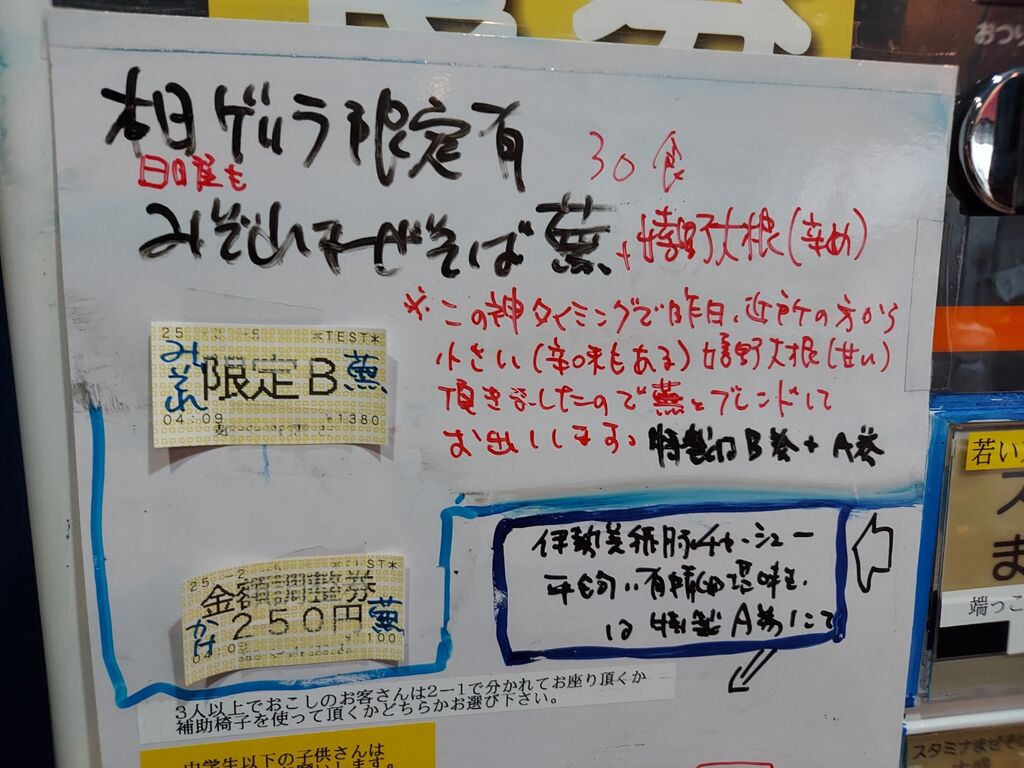 おつり
本日ゲリラ限定有
30食
みぞれ
蕪
+
大根(辛め)
※この神タイミングで昨日、近所の方から
小さい(辛味もある) 大根(甘い)
頂きましたので蕪とブレンドして
お出しします。特製はB券+A券
25
*TEST*
みぞれ
限定B蕪
04 09
¥1380
25-2
金額調整券
かけ
250円蕪
¥100
伊勢美稲豚チャーシュー
は特製A券にて
若い
端っこ
3人以上でおこしのお客さんは2-1で分かれてお座り頂くか
補助椅子を使って頂くかどちらかお選び下さい。
中学生以下の子供さんは
スタミナまぜそ